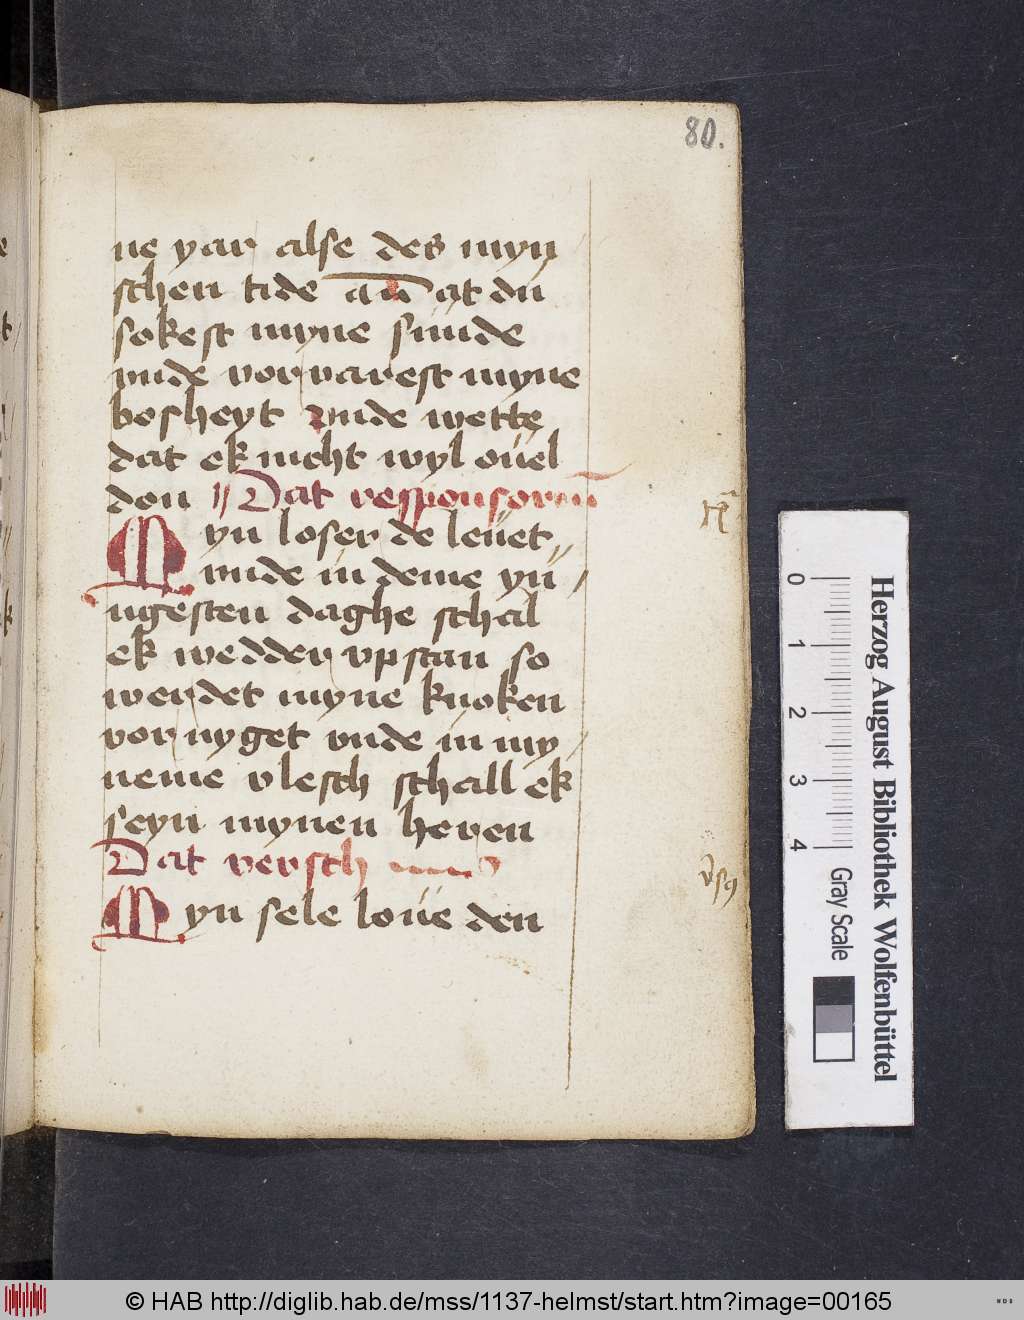 80.
ne yar alse des myn
schen tide an̄ at du
sokest myne sunde
vnde vorvarest myne
bosheyt vnde wette
dat ek nicht wyl ouel
don Dat responsorium
Myn loser de leuet
vnde in deme yu
ngesten daghe schal
ek wedder vpstan so
werdet myne knoken
vornyget vnde in my
neme vlesch schall ek
seyn mynen heren
Dat versch
Myn sele loue den
Herzog August Bibliothek Wolfenbüttel
0 1 2 3 4 Gray Scale
© HAB http://diglib.hab.de/mss/1137-helmst/start.htm?image=00165